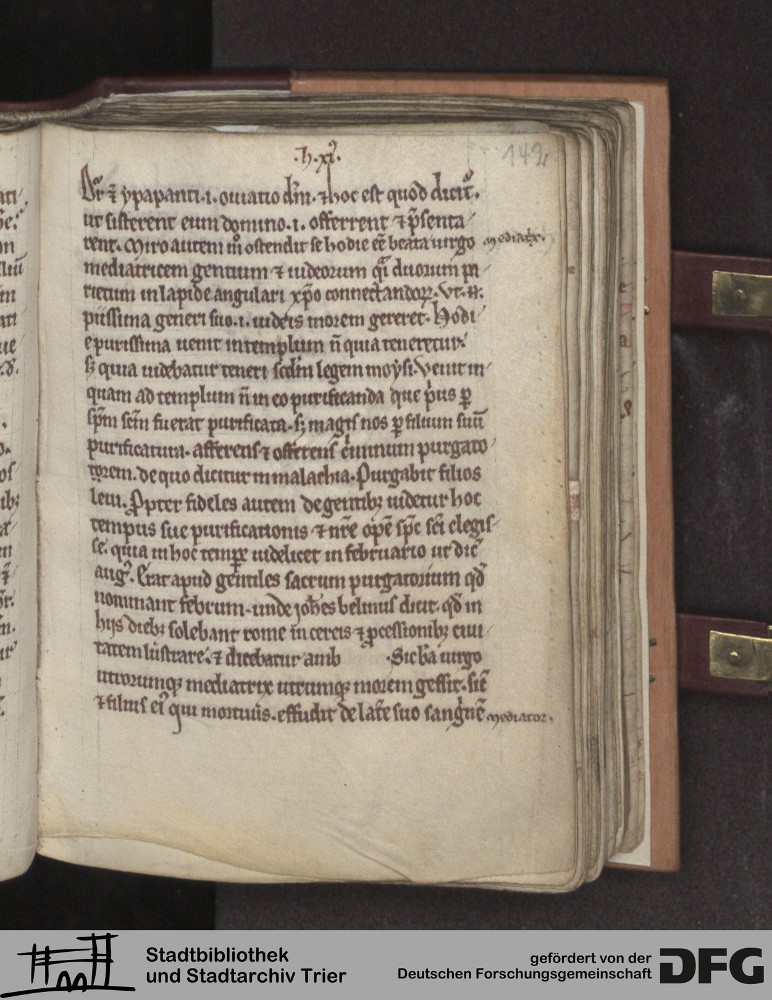 .h.xi.
142
Dr̄ ⁊ ypapanti .i. obuiatio dn̄i. ⁊ hoc est quod dicit᷒.
ut sisterent eum domino .i. offerrent ⁊ p̄senta
rent. Miro autem m̊ ostendit se hodie eē beata uirgo
mediatrix.
mediatricem gentium ⁊ iudeorum q̄si duorum pa
rietum in lapide angulari xp̄o connectandoꝝ. Vt .n.
piissima generi suo .i. iudeis morem gereret. Hodi
e purissima uenit in templum n̄ quia teneretur.
sꝫ quia uidebatur teneri scd̄m legem moysi. Venit in
quam ad templum n̄ in eo purificanda que p̄us ꝑ
sp̄m sc̄m fuerat purificata. sꝫ magis nos ꝑ filium suū
purificatura. afferens ⁊ offerens c̄iuinum purgato
torem. de quo dicitur in malachia. Purgabit filios
leui. Propter fideles autem de gentibꝫ uidetur hoc
tempus sue purificationis ⁊ nr̄e opē sp̄c sc̄i elegis
se. quia in hoc tempꝑe uidelicet in februario ut dic̄
aug᷒. Erat apud gentiles sacrum purgatorium qd̄
nominant februm. unde joh̄es belinus dicit. qd̄ in
hijs diebꝫ solebant rome in cereis ⁊ ꝓcessionibꝫ ciui
tatem lustrare. ⁊ dicebatur amb .Sic b̄a uirgo
utrorumqꝫ mediatrix utrumqꝫ morem gessit. sic̄
⁊ filius ei᷒ qui mortuus. effudit de lat̄e suo sanguinē
mediator.
Stadtbibliothek
und Stadtarchiv Trier
gefördert von der
Deutschen Forschungsgemeinschaft
DFG